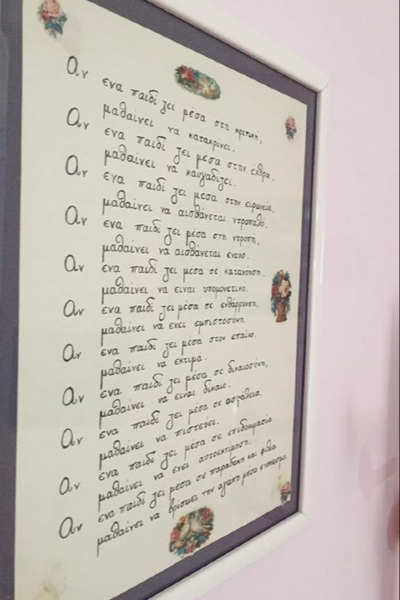 Αν ενα παιδί ζει μέσα στη κριτικη,
μαθαίνει να κατακρίνει.
Αν ενα παιδί ζει μέσα στην εχθρα,
μαθαίνει να καυγαδίζει.
Αν ενα παιδί ζει μέσα στην ειρωνεία,
μαθαίνει να αισθάνεται ντροπαλό.
Αν ενα παιδί ζει μέσα στη ντροπη,
μαθαίνει να αισθάνεται ενοχο.
Αν ενα παιδί ζει μέσα σε κατανοηση,
μαθαίνει να ειναι υπομονετικο.
Αν ενα παιδί ζει μέσα σε ενθάρρυνση,
μαθαίνει να εχει εμπιστοσύνη.
Αν ενα παιδί ζει μέσα στον επαινο,
μαθαίνει να εκτιμά.
Αν ενα παιδί ζει μέσα σε δικαιοσύνη,
μαθαίνει να ειναι δικαιο.
Αν ενα παιδί ζει μέσα σε ασφάλεια,
μαθαίνει να πιστεύει.
Αν ενα παιδί ζει μέσα σε επιδοκιμασία
μαθαίνει να εχει αυτοεκτίμηση.
Αν ενα παιδί ζει μέσα σε παραδοχη και φιλια
μαθαίνει να βρισκει την αγαπη μέσα